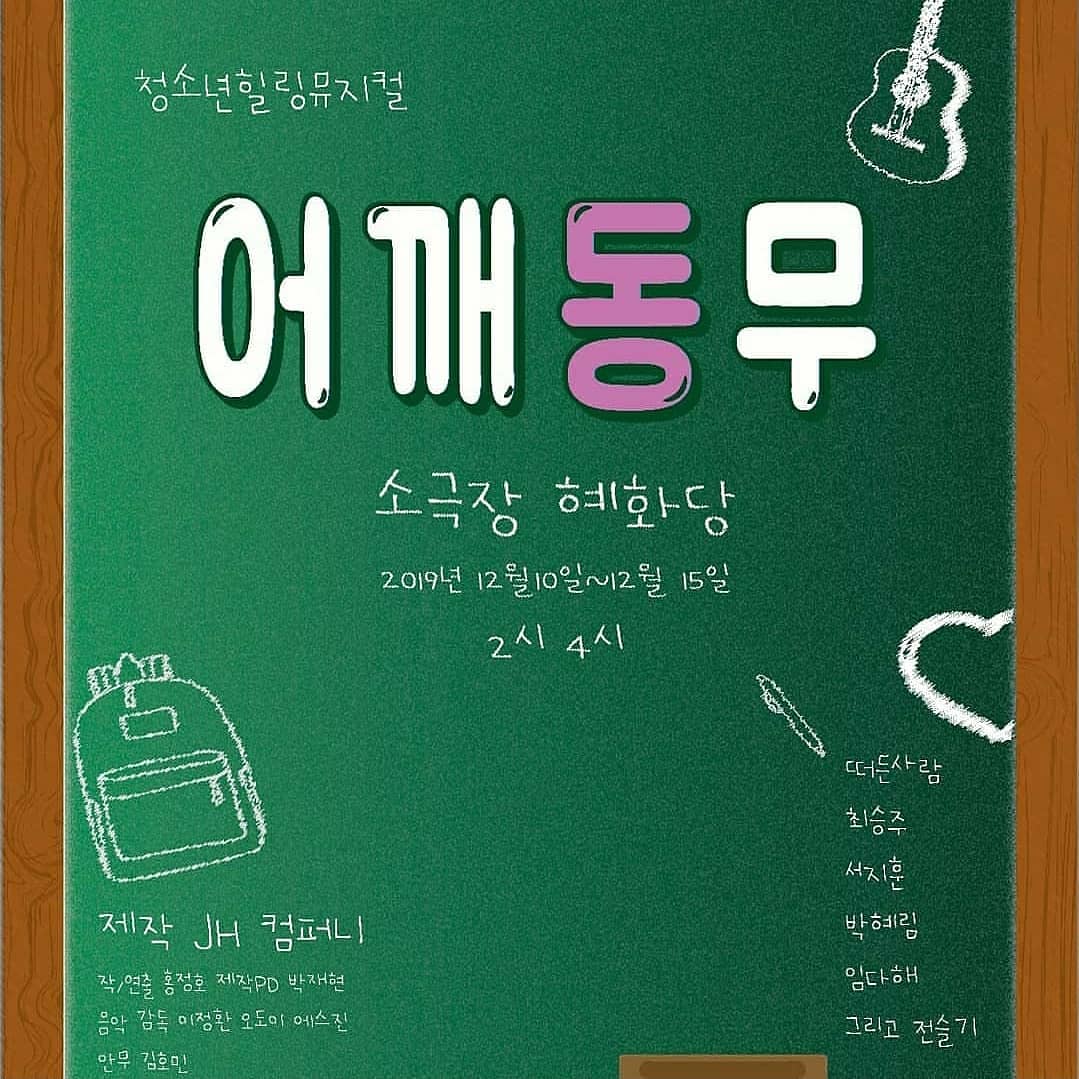 청소년힐링뮤지컬
어깨동무
소극장 혜화당
2019년 12월10일~12월 15일
2시 4시
떠든사람
최승주
서지훈
박혜림
임다해
그리고 전슬기
제작 JH 컴퍼니
작/연출 홍정호 제작PD 박재현
음악 감독 이정환 오도이 에스진
안무 김호민